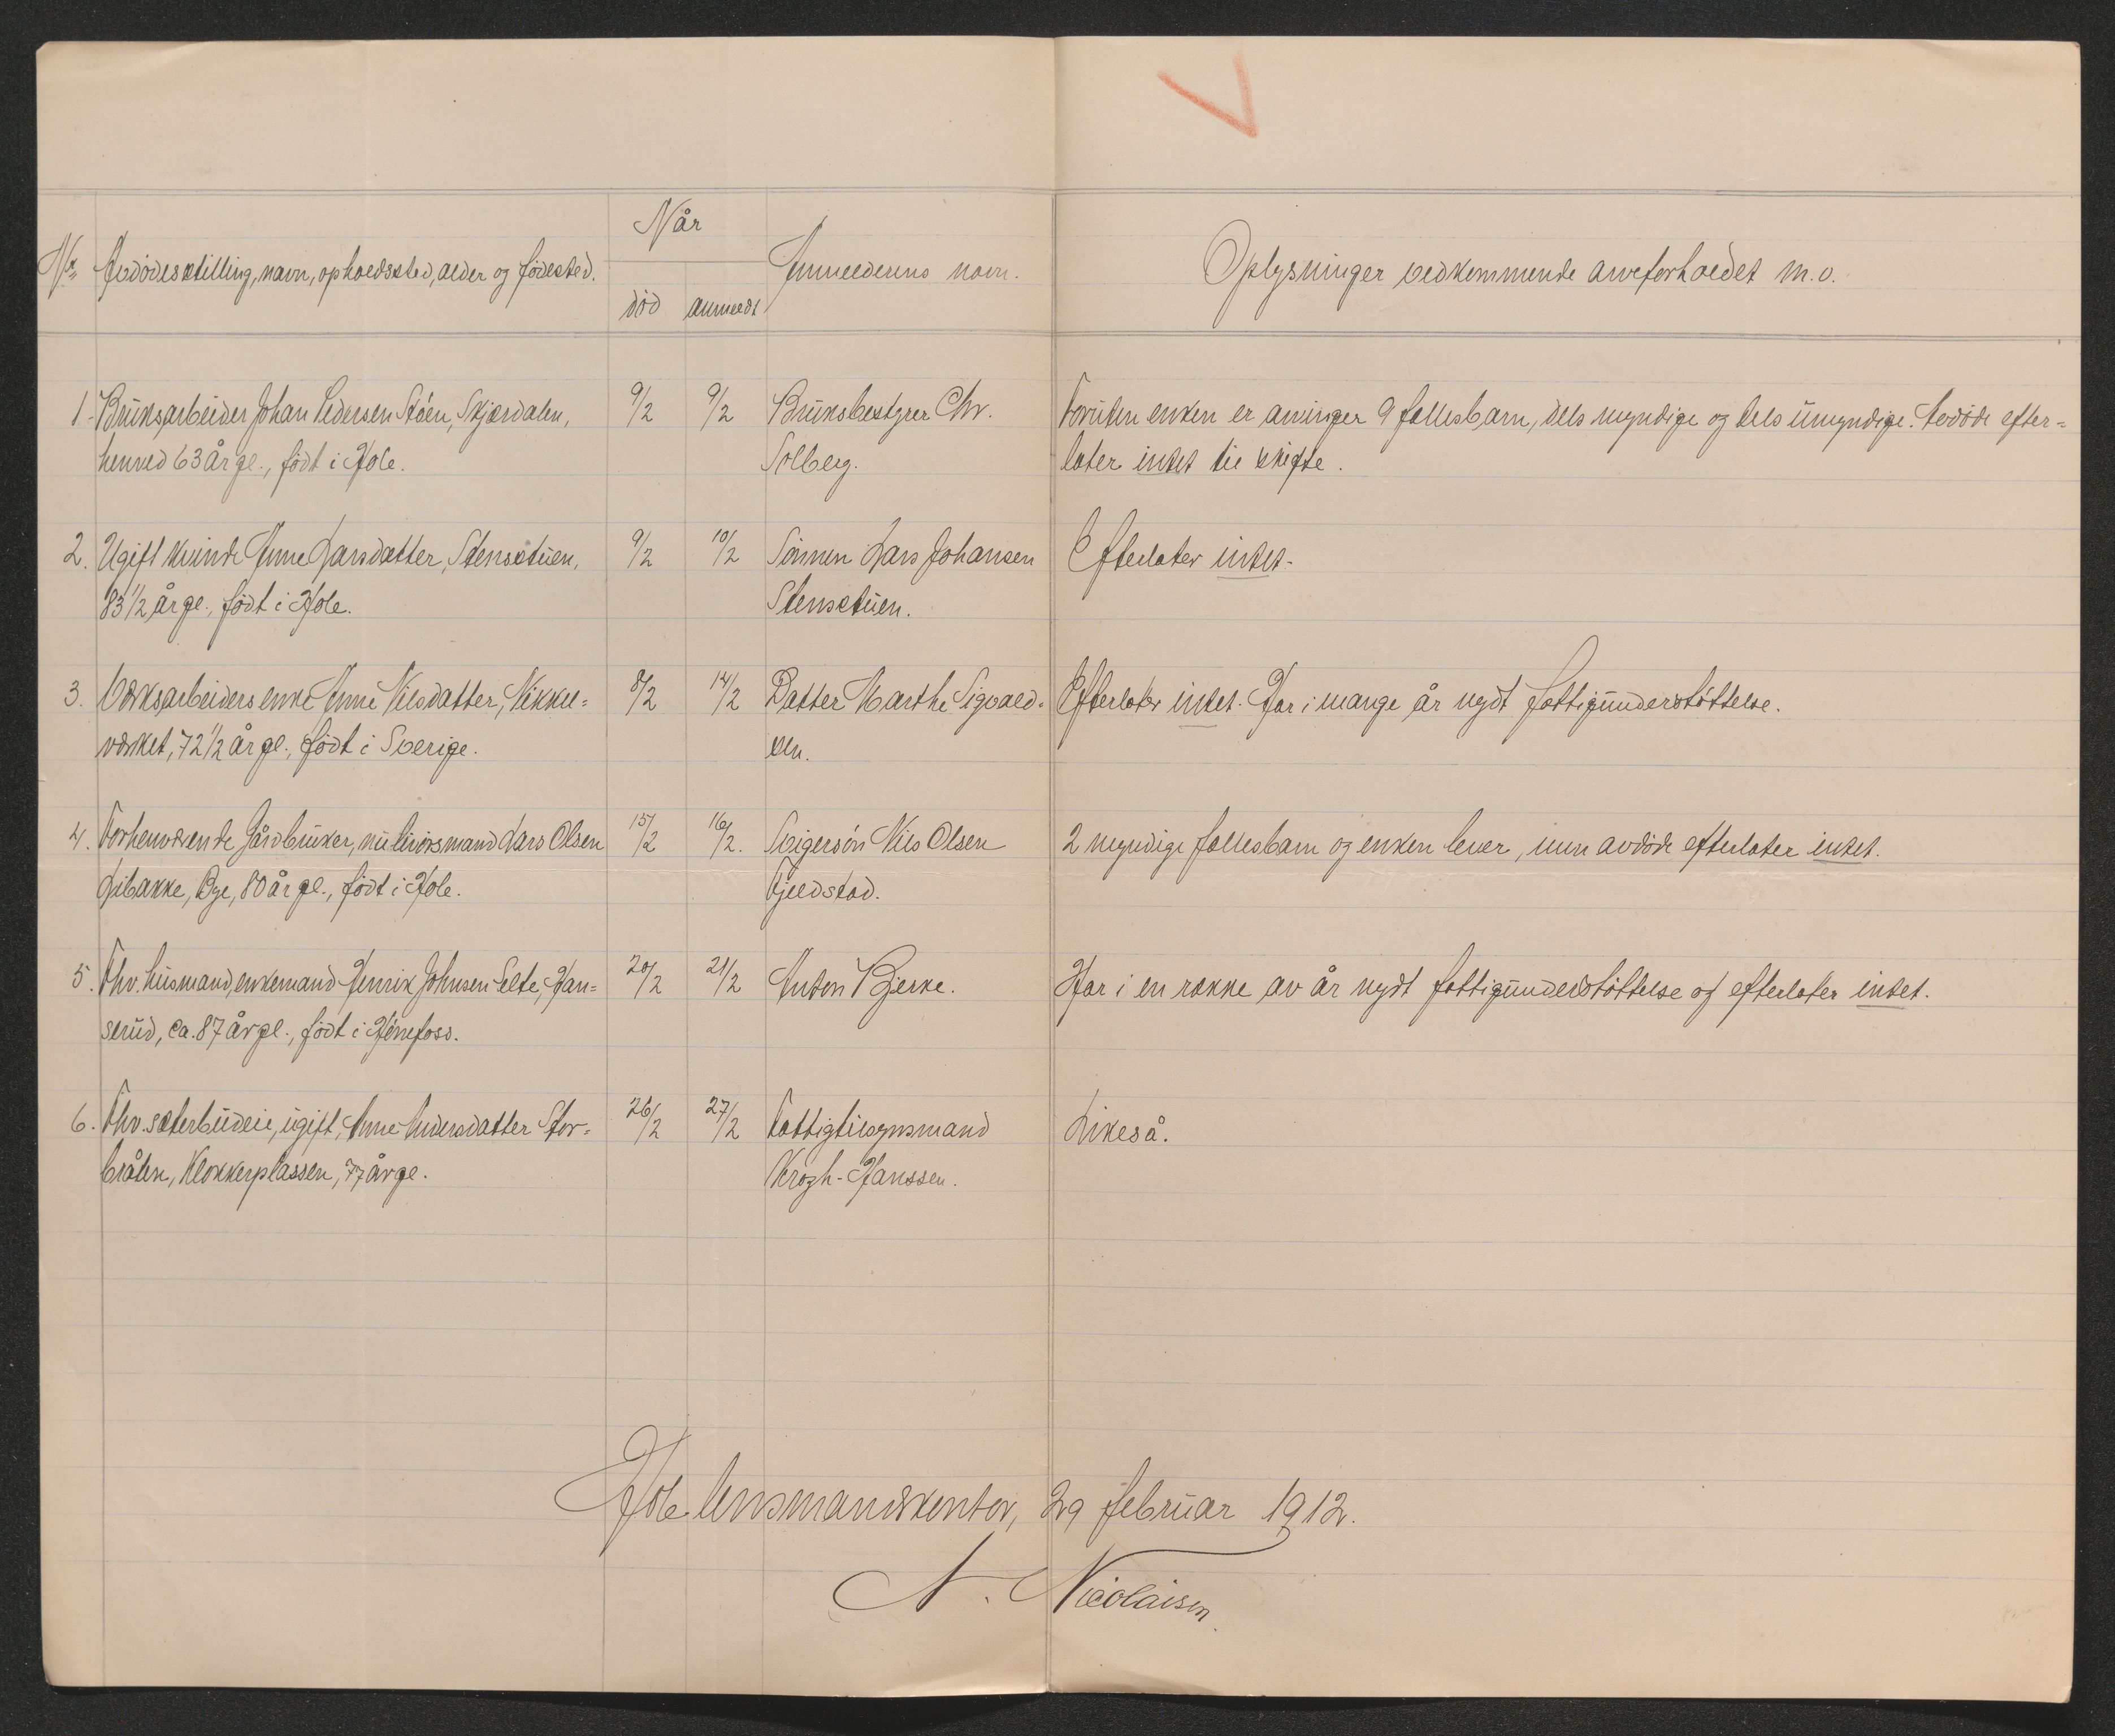 Når
No. Avdödes stilling, navn, opholdssted, alder og födested.
död anmeldt
Anmelderens navn.
Oplysninger vedkommende arveforholdet m.v.
1. Bruksarbeider Johan Pedersen Stöen, Skjærdalen, 9/2 9/2 Bruksbestyrer Chr. Foruten enken er arvinger 9 fællesbarn, dels myndige og dels umyndige. Avdöde efter=
henved 63 år gl., födt i Hole. Solberg. later intet til skifte.
2. Ugift kvinde Anne Larsdatter, Stensstuen, 9/2 10/2 Sönnen Lars Johansen Efterlater intet.
83 1/2 år gl., födt i Hole. Stensstuen.
3. Værksarbeiders enke Anne Nilsdatter, Nikkel= 8/2 14/2 Datter Marthe Sigvald= Efterlater intet. Har i mange år nydt fattigunderstöttelse.
værket, 72 1/2 år gl., födt i Sverige. sen.
4. Forhenværende gårdbruker, nu livörsmand Lars Olsen 15/2 16/2. Svigersön Nils Olsen 2 myndige fællesbarn og enken lever, men avdöde efterlater intet.
Libakke, Bye, 80 år gl., födt i Hole. Fjeldstad.
5. Fhv. husmand, enkemand Henrik Johnsen Selte, Han= 20/2 21/2 Anton Bjerke. Har i en række av år nydt fattigunderstöttelse og efterlater intet.
serud, ca. 87 år gl., födt i Hönefoss.
6. Fhv. sæterbudeie, ugift, Anne Andersdatter Stor= 26/2 27/2 Fattigtilsynsmand Likeså.
bråten, Klokkerplassen, 77 år gl. Krogh-Hanssen.
Hole lensmandskontor, 29 februar 1912.
N. Nicolaisen.